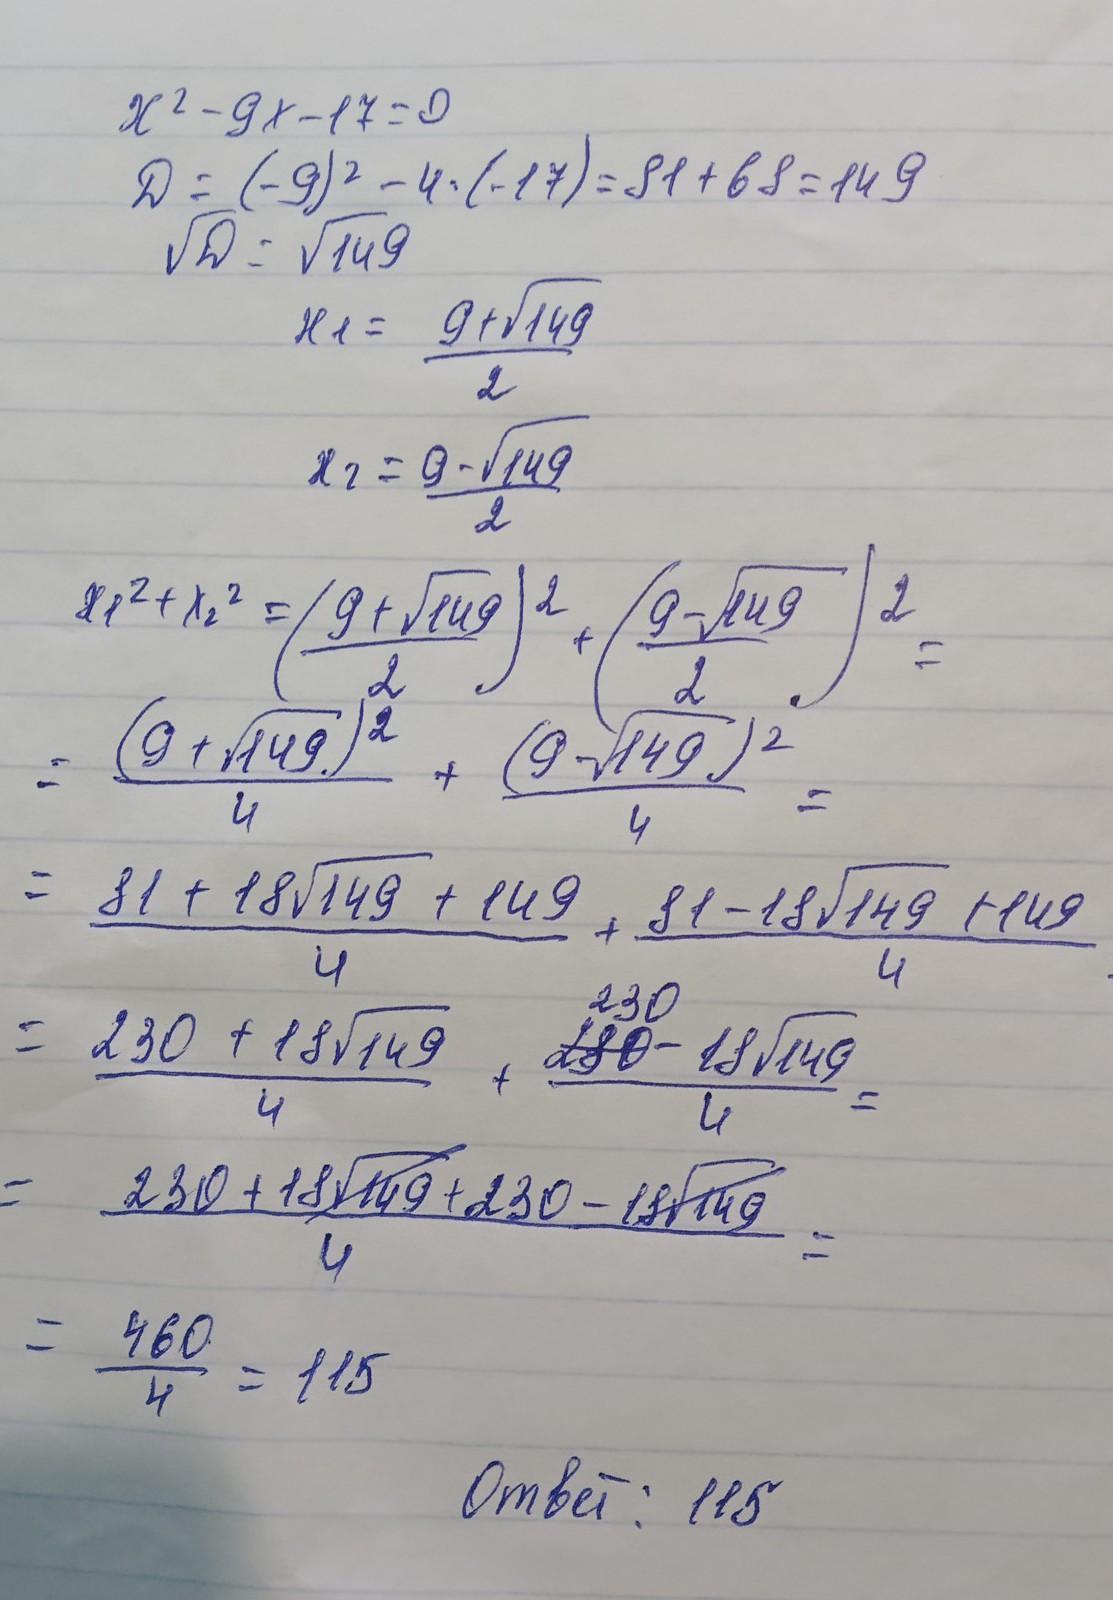 x² - 9x - 17 = 0
D = (-9)² - 4·(-17) = 81 + 68 = 149
√D = √149
x₁ = (9+√149)/2
x₂ = (9-√149)/2
x₁² + x₂² = ((9+√149)/2)² + ((9-√149)/2)² =
= (9+√149)²/4 + (9-√149)²/4 =
= (81 + 18√149 + 149)/4 + (81 - 18√149 + 149)/4
= (230 + 18√149)/4 + (230 - 18√149)/4 =
= (230 + 18√149 + 230 - 18√149)/4 =
= 460/4 = 115
Ответ: 115